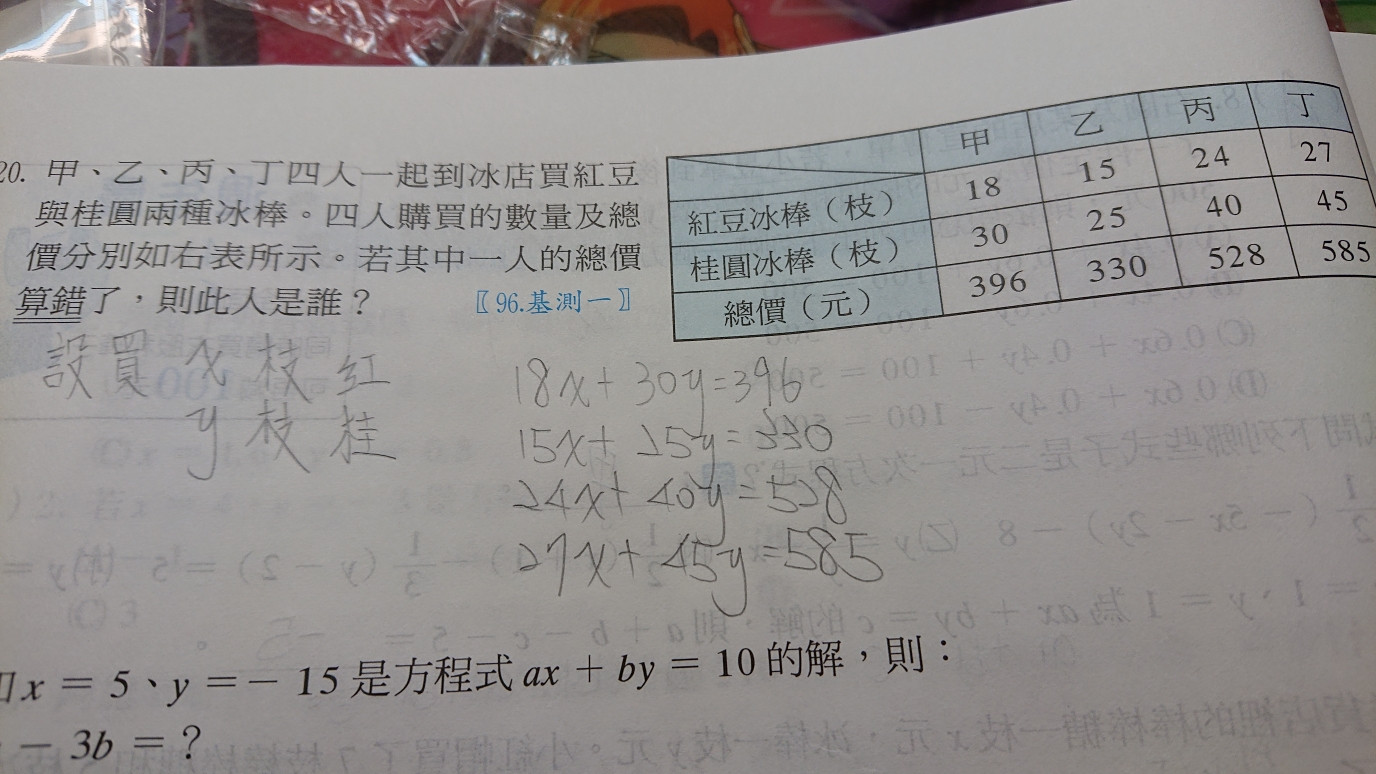 20. 甲、乙、丙、丁四人一起到冰店買紅豆
與桂圓兩種冰棒。四人購買的數量及總
價分別如右表所示。若其中一人的總價
算錯了,則此人是誰? 〖96.基測一〗
甲 乙 丙 丁
紅豆冰棒(枝) 18 15 24 27
桂圓冰棒(枝) 30 25 40 45
總價(元) 396 330 528 585
設買 x 枝 紅
y 枝 桂
18x+30y=396
15x+25y=330
24x+40y=528
27x+45y=585
x = 5、y = - 15 是方程式 ax + by = 10 的解,則:
- 3b = ?